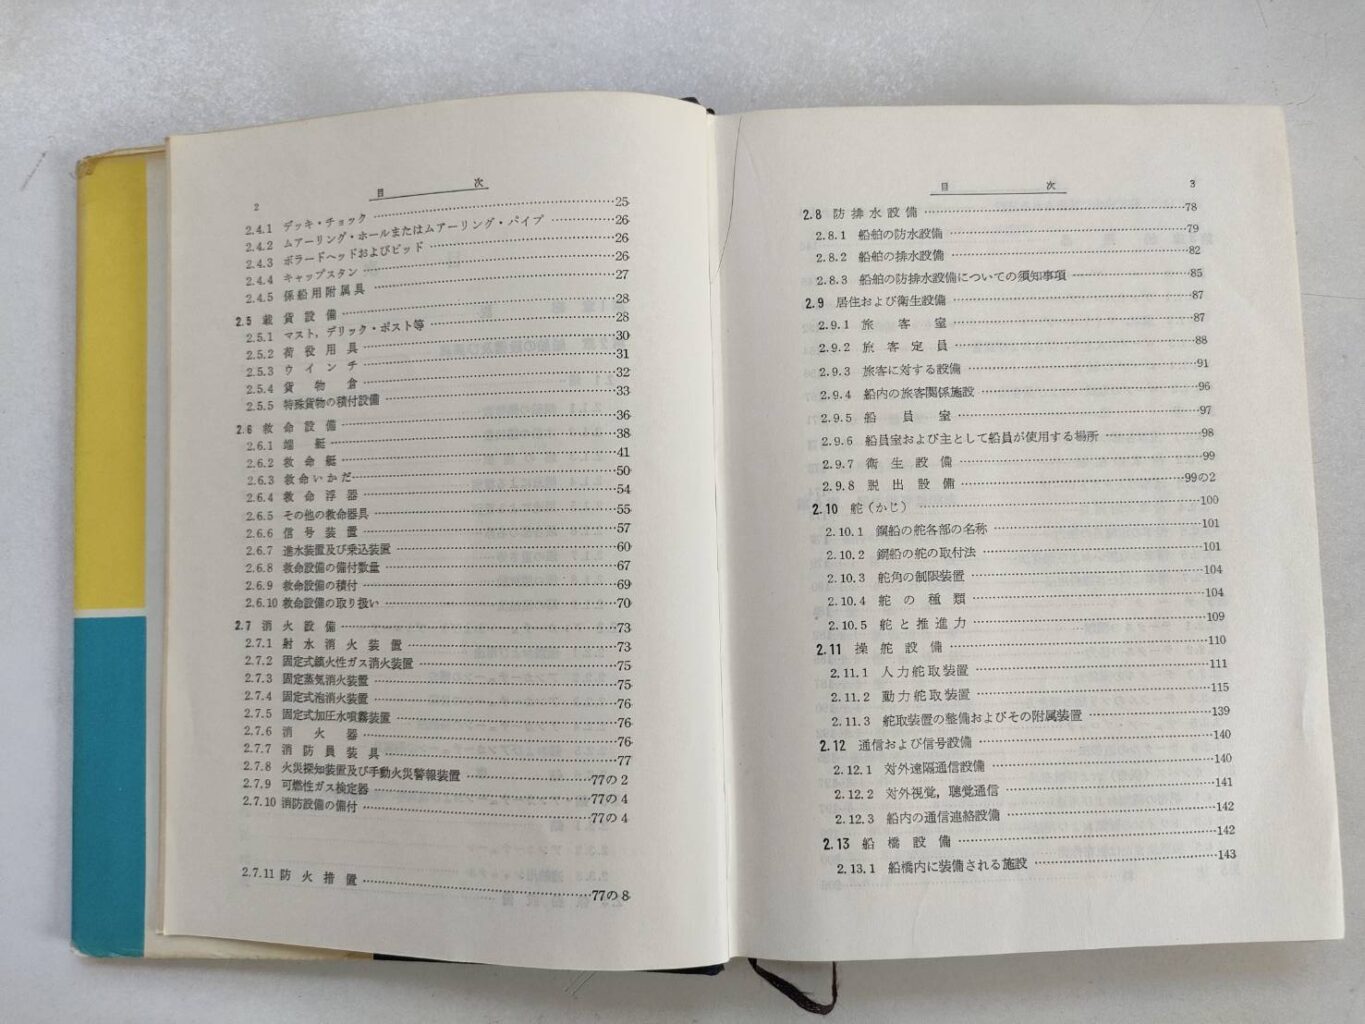 2 目次
2.4.1 デッキ・チョック……25
2.4.2 ムアーリング・ホールまたはムアーリング・パイプ……26
2.4.3 ボラードヘッドおよびビッド……26
2.4.4 キャップスタン……26
2.4.5 係船用附属具……27
2.5 載貨設備……28
2.5.1 マスト，デリック・ポスト等……28
2.5.2 荷役用具……30
2.5.3 ウインチ……31
2.5.4 貨物倉……32
2.5.5 特殊貨物の積付設備……33
2.6 救命設備……36
2.6.1 端艇……38
2.6.2 救命艇……41
2.6.3 救命いかだ……50
2.6.4 救命浮器……54
2.6.5 その他の救命器具……55
2.6.6 信号装置……57
2.6.7 進水装置及び乗込装置……60
2.6.8 救命設備の備付数量……67
2.6.9 救命設備の積付……69
2.6.10 救命設備の取り扱い……70
2.7 消火設備……73
2.7.1 射水消火装置……73
2.7.2 固定式鎮火性ガス消火装置……75
2.7.3 固定蒸気消火装置……75
2.7.4 固定式泡消火装置……76
2.7.5 固定式加圧水噴霧装置……76
2.7.6 消火器……76
2.7.7 消防員装具……77
2.7.8 火災探知装置及び手動火災警報装置……77の2
2.7.9 可燃性ガス検定器……77の4
2.7.10 消防設備の備付……77の4
2.7.11 防火措置……77の8
目次 3
2.8 防排水設備……78
2.8.1 船舶の防水設備……79
2.8.2 船舶の排水設備……82
2.8.3 船舶の防排水設備についての須知事項……85
2.9 居住および衛生設備……87
2.9.1 旅客室……87
2.9.2 旅客定員……88
2.9.3 旅客に対する設備……91
2.9.4 船内の旅客関係施設……96
2.9.5 船員室……97
2.9.6 船員室および主として船員が使用する場所……98
2.9.7 衛生設備……99
2.9.8 脱出設備……99の2
2.10 舵（かじ）……100
2.10.1 鋼船の舵各部の名称……101
2.10.2 鋼船の舵の取付法……101
2.10.3 舵角の制限装置……104
2.10.4 舵の種類……104
2.10.5 舵と推進力……109
2.11 操舵設備……110
2.11.1 人力舵取装置……111
2.11.2 動力舵取装置……115
2.11.3 舵取装置の整備およびその附属装置……139
2.12 通信および信号設備……140
2.12.1 対外遠隔通信設備……140
2.12.2 対外視覚，聴覚通信……141
2.12.3 船内の通信連絡設備……142
2.13 船橋設備……142
2.13.1 船橋内に装備される施設……143